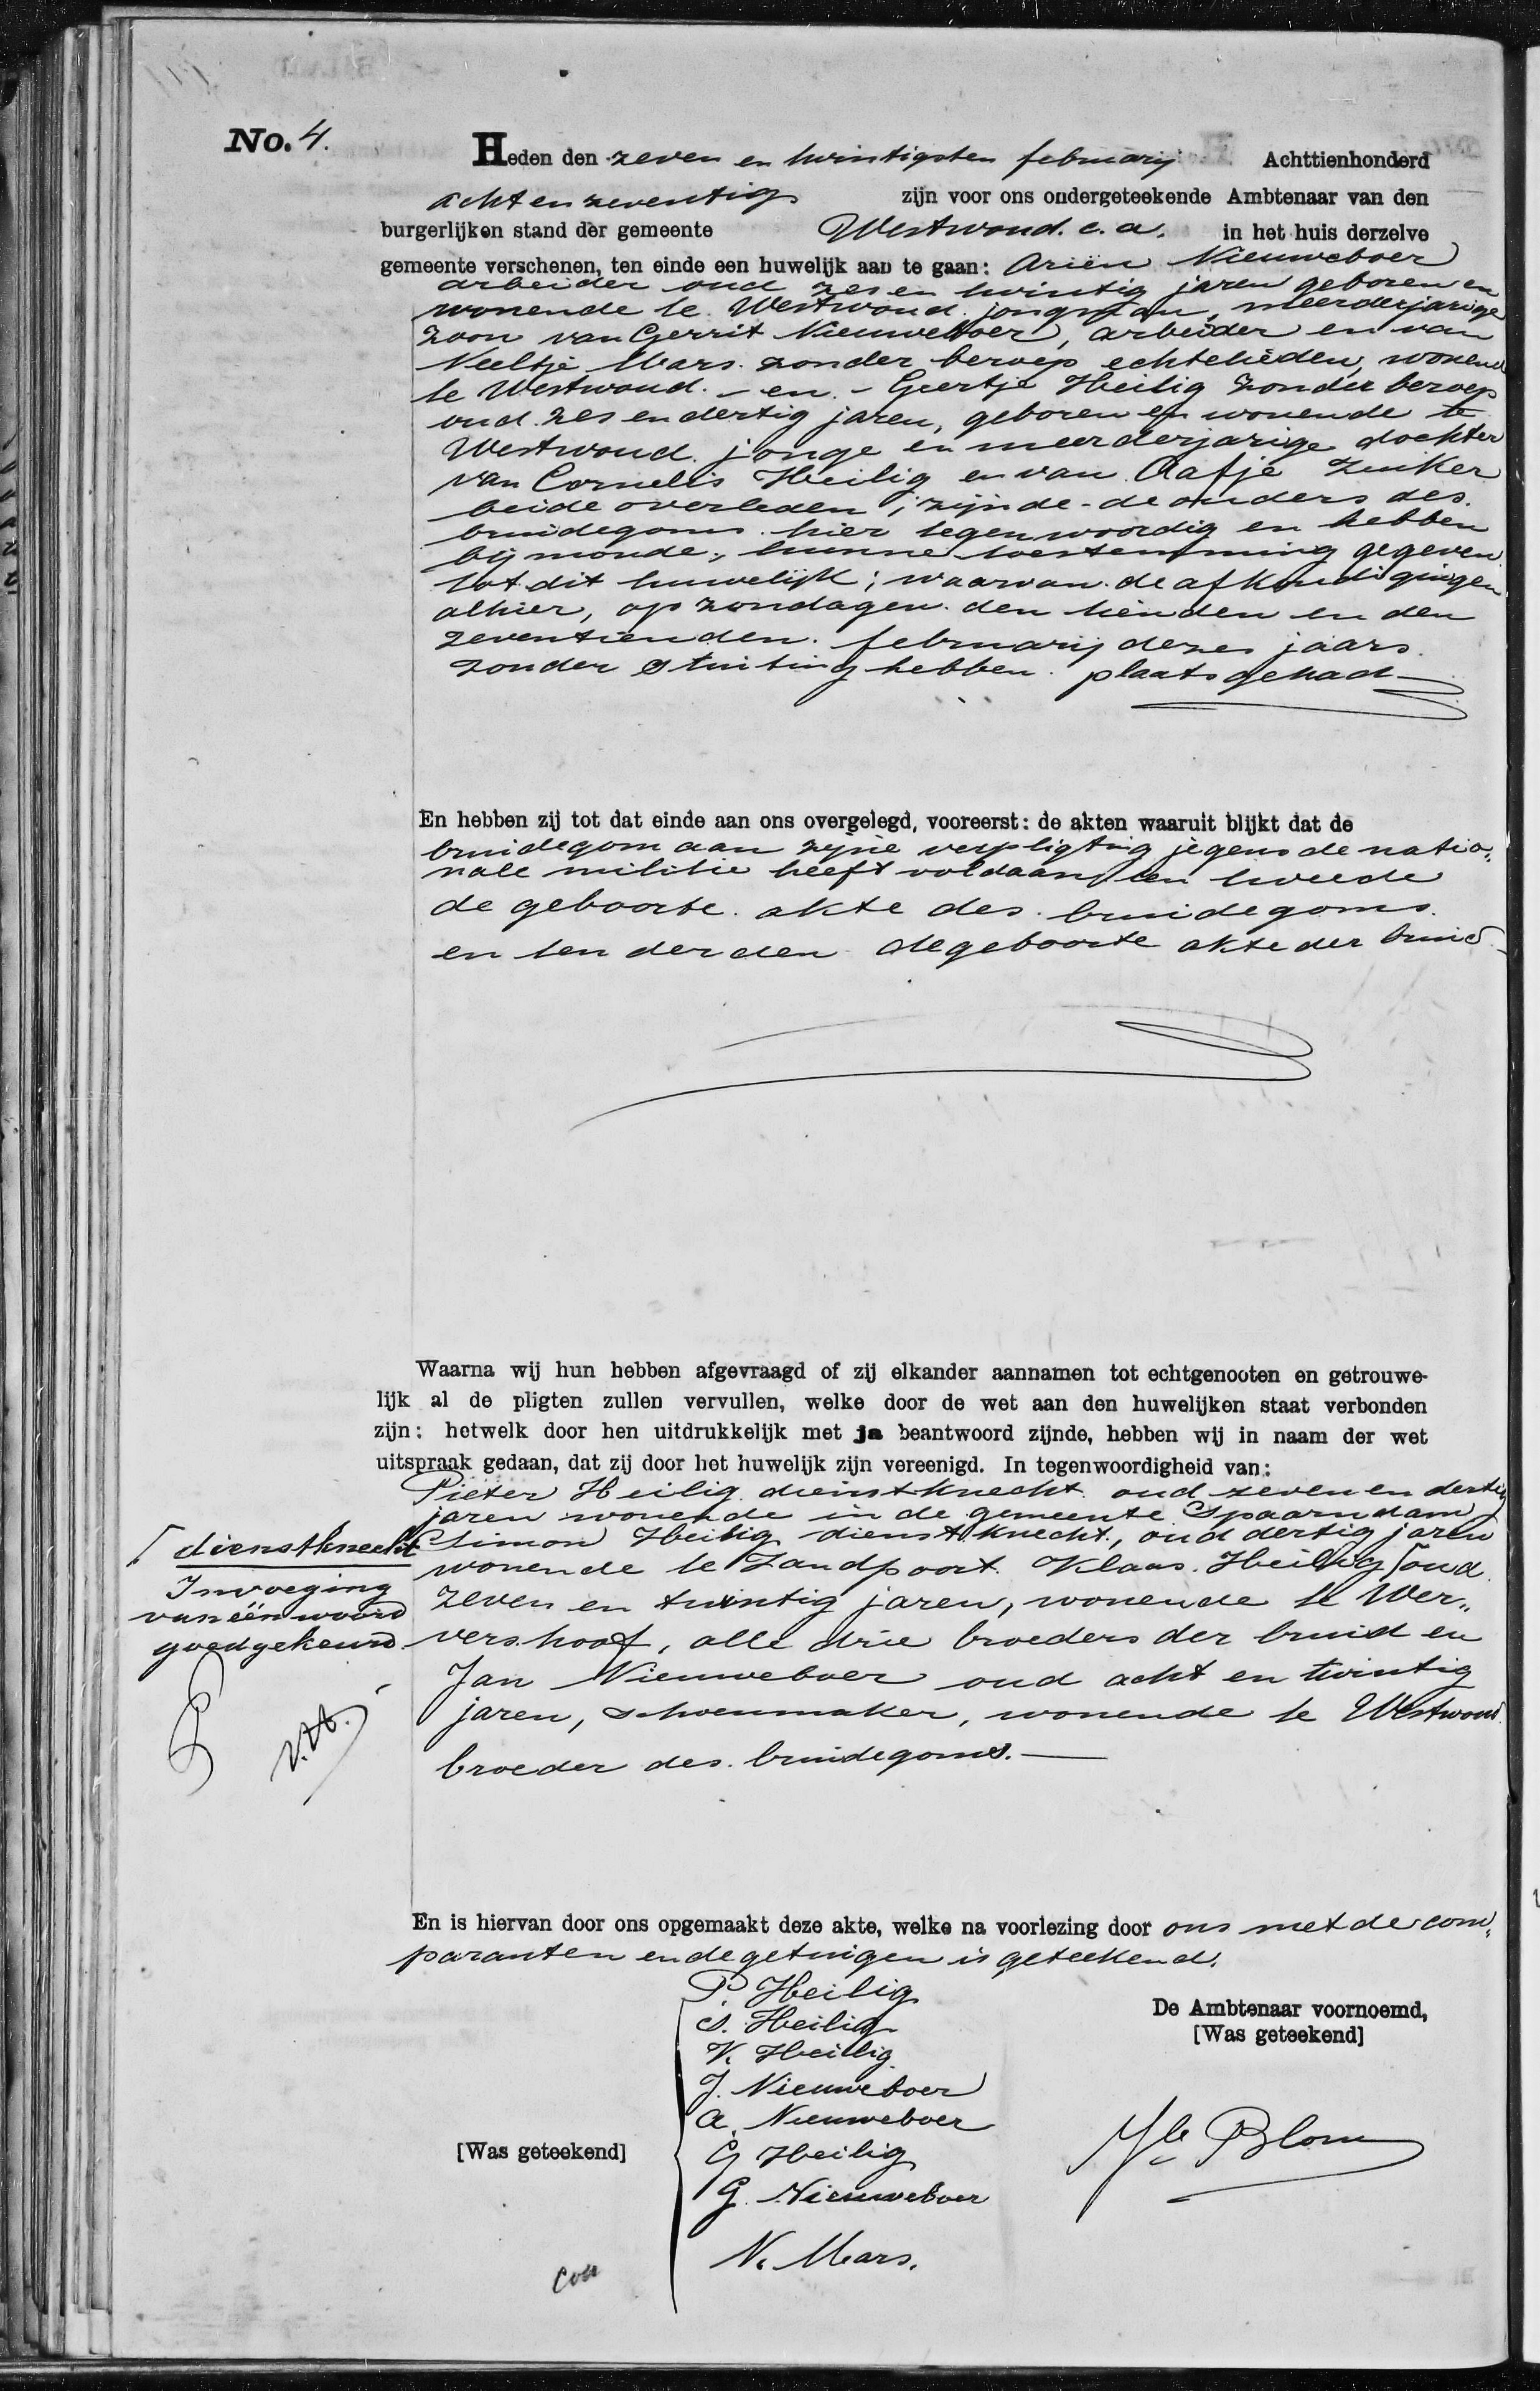 No. 4.
Heden den zeven en twintigsten februarij Achttienhonderd
acht en zeventig zijn voor ons ondergeteekende Ambtenaar van den
burgerlijken stand der gemeente Westwoud. c. a. in het huis derzelve
gemeente verschenen, ten einde een huwelijk aan te gaan: Ariën Nieuweboer
arbeider oud zes en twintig jaren geboren en
wonende te Westwoud. jongman, meerderjarige
zoon van Gerrit Nieuweboer, arbeider en van
Neeltje Mars. zonder beroep echtelieden, wonend
te Westwoud. - en - Geertje Heilig zonder beroep
oud zes en dertig jaren, geboren en wonende te
Westwoud. jonge en meerderjarige dochter
van Cornelis Heilig en van Aafje Zuiker
beide overleden; zijnde de ouders des
bruidegoms hier tegenwoordig en hebben
bij monde, hunne toestemming gegeven
tot dit huwelijk; waarvan de afkondigingen
alhier, op zondagen den tienden en den
zeventienden. februarij dezes jaars.
zonder stuiting hebben plaats gehad
En hebben zij tot dat einde aan ons overgelegd, vooreerst: de akten waaruit blijkt dat de
bruidegom aan zijne verpligting jegens de natio„
nale militie heeft voldaan, ten tweede
de geboorte akte des bruidegoms.
en ten derden de geboorte akte der bruid
Waarna wij hun hebben afgevraagd of zij elkander aannamen tot echtgenooten en getrouwe-
lijk al de pligten zullen vervullen, welke door de wet aan den huwelijken staat verbonden
zijn: hetwelk door hen uitdrukkelijk met ja beantwoord zijnde, hebben wij in naam der wet
uitspraak gedaan, dat zij door het huwelijk zijn vereenigd. In tegenwoordigheid van:
Pieter Heilig dienstknecht oud zeven en dertig
jaren wonende in de gemeente Spaarndam
Simon Heilig dienstknecht, oud dertig jaren
wonende te Zandpoort Klaas Heilig ⌈oud
zeven en twintig jaren, wonende te Wer„
vershoof, alle drie broeders der bruid en
Jan Nieuweboer oud acht en twintig
jaren, schoenmaker, wonende te Westwoud
broeder des bruidegoms.
⌈ dienstknecht
Invoeging
van één woord
goedgekeurd.
En is hiervan door ons opgemaakt deze akte, welke na voorlezing door ons met de com„
paranten en de getuigen is geteekend.
P. Heilig
S. Heilig
K. Heilig
J. Nieuweboer
A. Nieuweboer
G Heilig
G. Nieuweboer
N. Mars.
[Was geteekend]
De Ambtenaar voornoemd,
[Was geteekend]
Blom